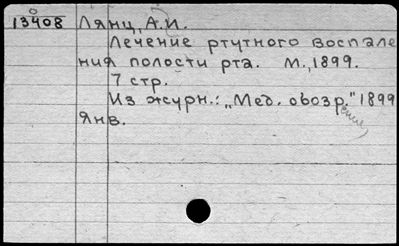 13408 Лянц, А.И.
Лечение ртутного воспале
ния полости рта. М., 1899.
7 стр.
Из журн.: „Мед. обозр." 1899
ение,
Янв.